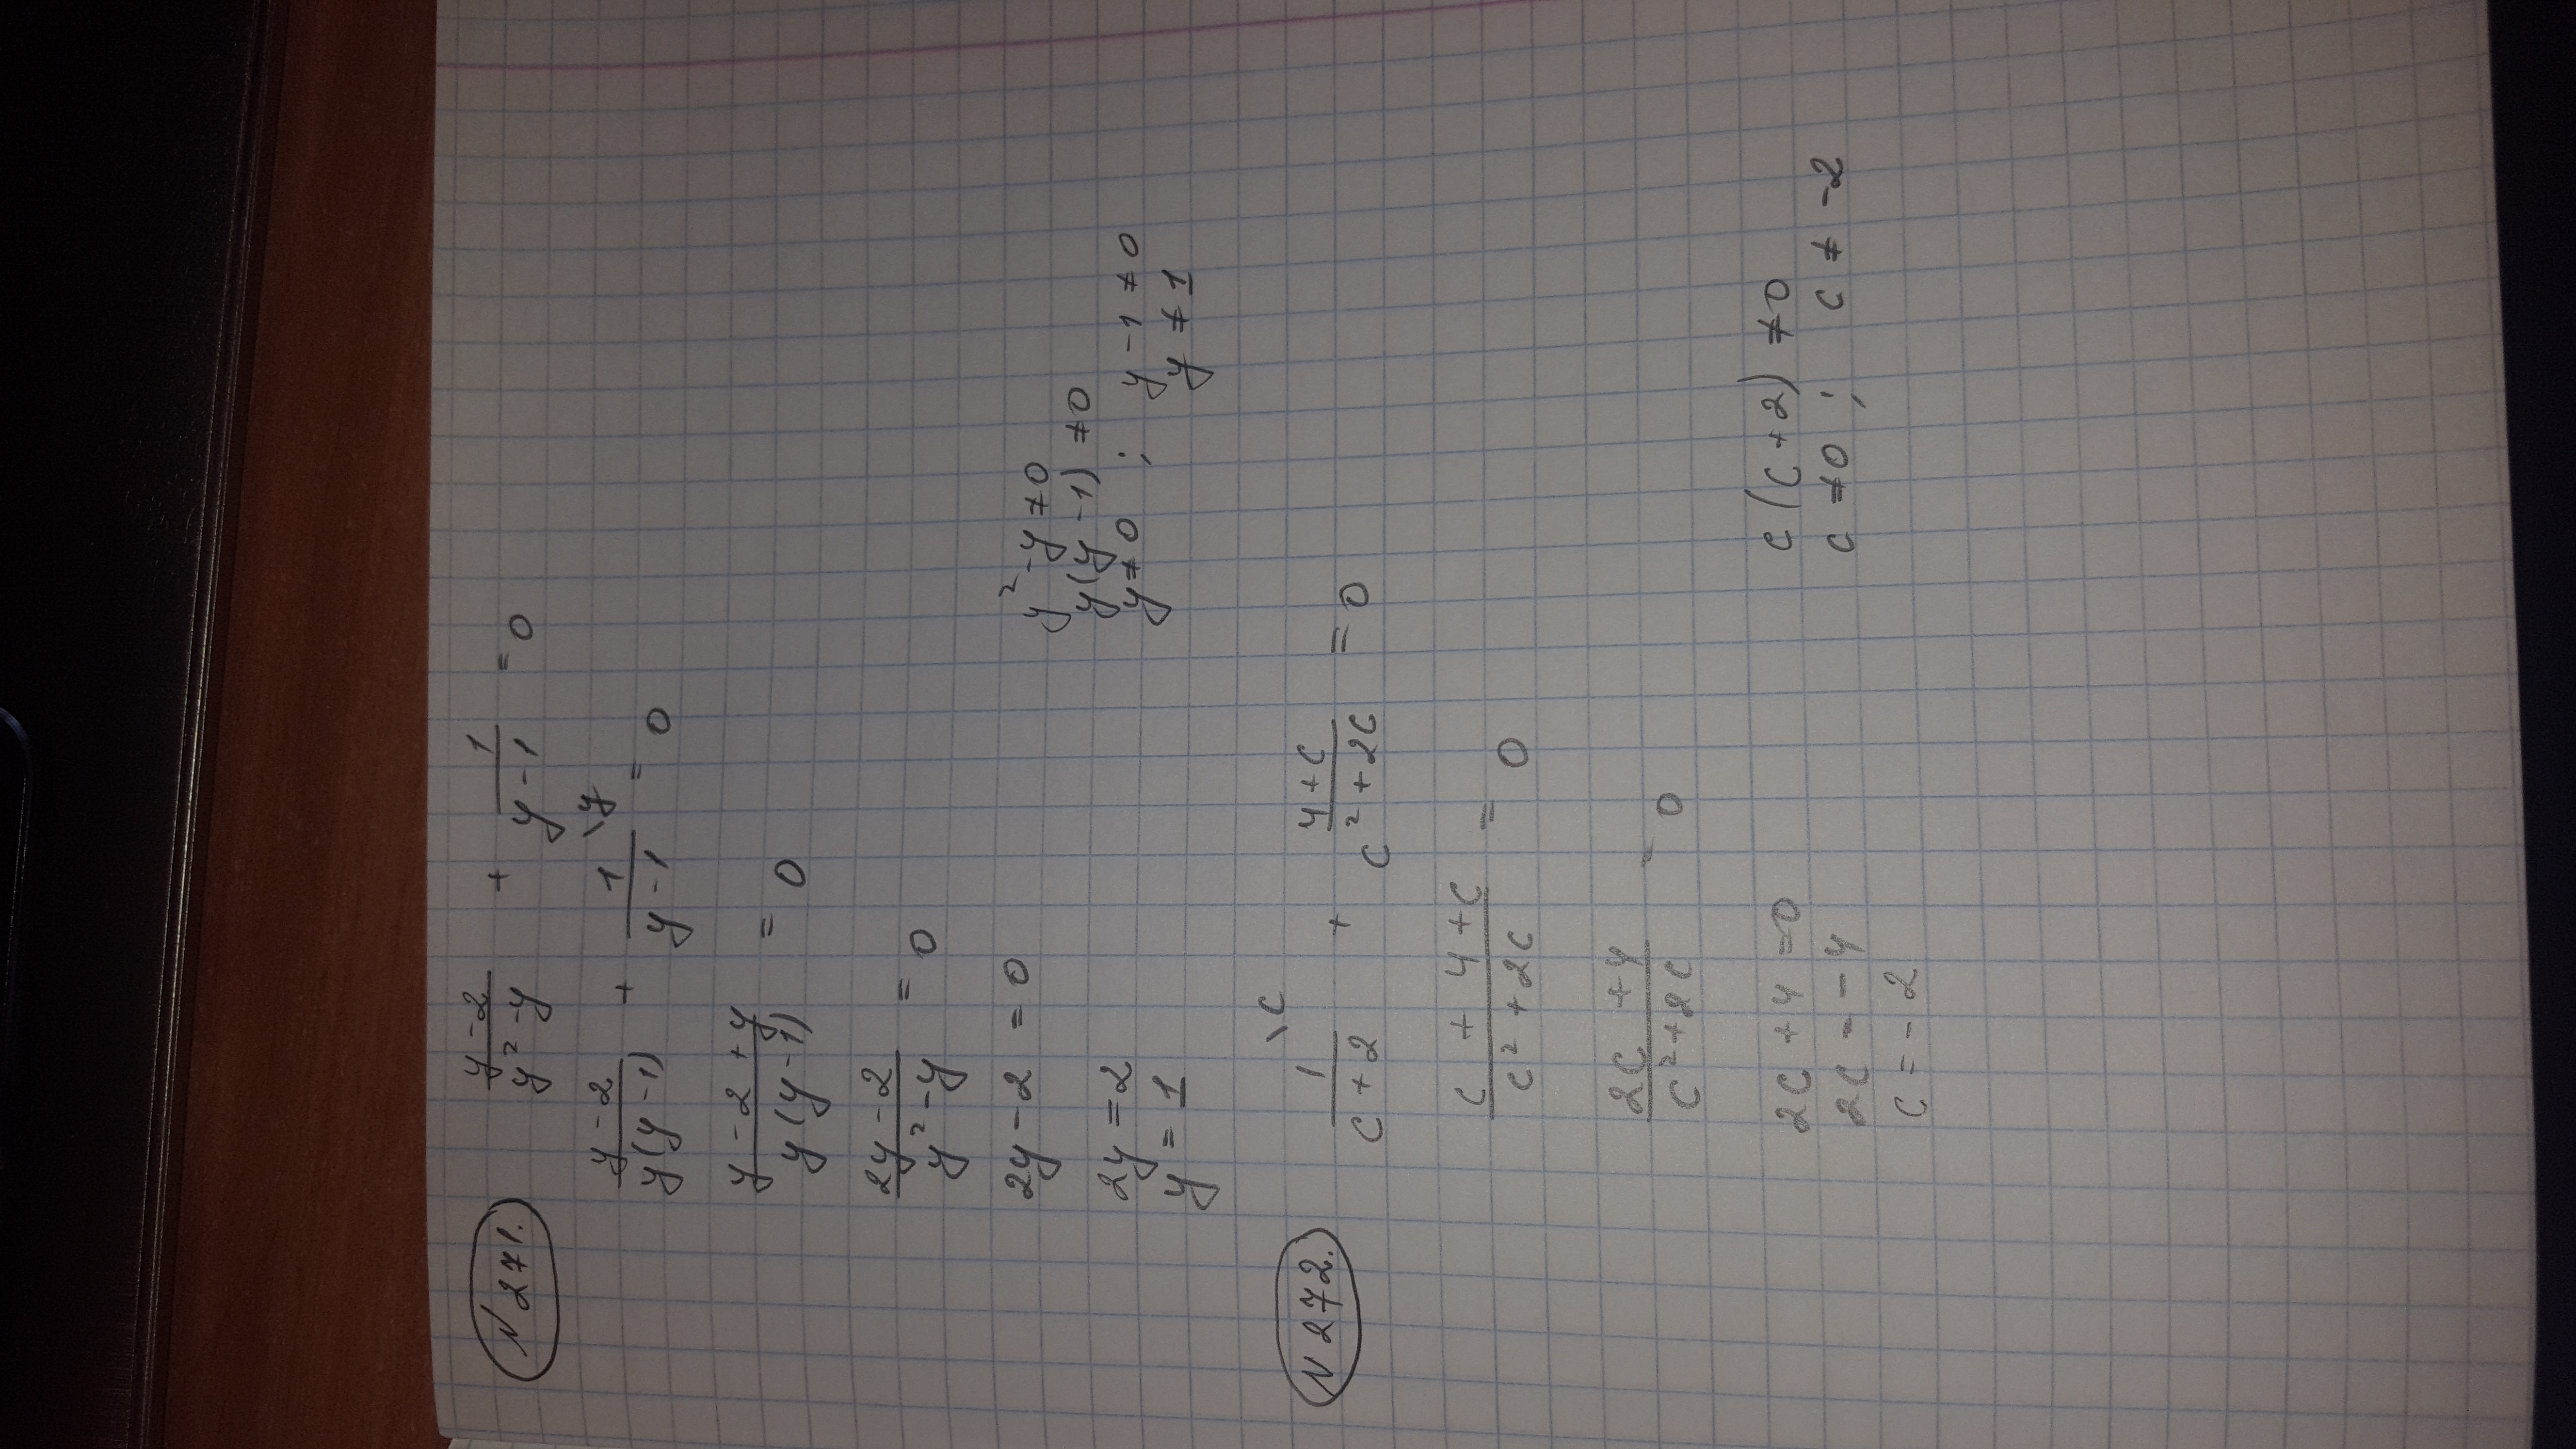 N 271.
(y-2)/(y²-y) + 1/(y-1) = 0
(y-2)/(y(y-1)) + 1/(y-1) \y = 0
(y-2+y)/(y(y-1)) = 0
(2y-2)/(y²-y) = 0
2y-2 = 0
2y = 2
y = 1
y²-y ≠ 0
y(y-1) ≠ 0
y ≠ 0 ; y-1 ≠ 0
y ≠ 1
N 272.
1/(c+2) \c + (4+c)/(c²+2c) = 0
(c+4+c)/(c²+2c) = 0
(2c+4)/(c²+2c) - 0
2c+4 = 0
2c = -4
c = -2
c(c+2) ≠ 0
c ≠ 0 ; c ≠ -2